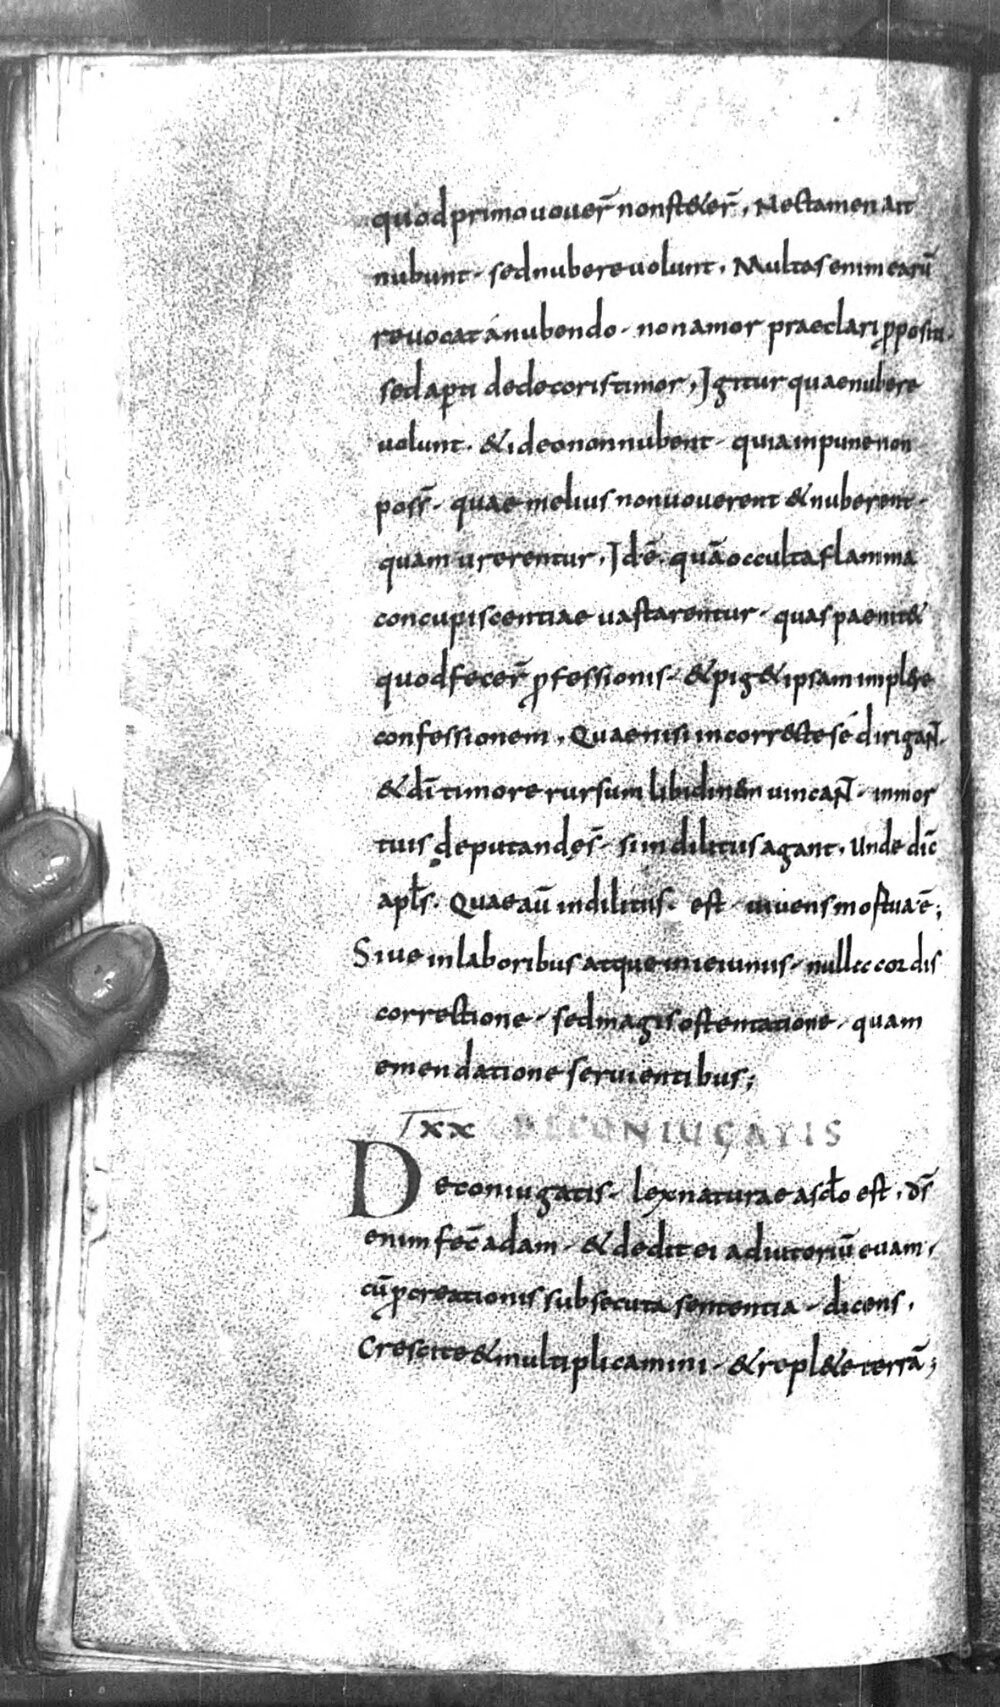 quod primo vover̄ non st&er̄, Nec tamen ait
nubunt. sed nubere volunt, Multas enim earū
revocat á nubendo. non amor praeclari ꝓpositi.
sed aperti dedecoris timor, Igitur quae nubere
volunt. & ideo non nubent. quia inpune non
poss̄. quae melius non voverent & nuberent.
quam urerentur, Id ē. quā occulta flamma
concupiscentiae vastarentur. quas paenit&
quod fecer̄ ꝓfessionis. & pig& ipsam implere
confessionem, Quae nisi in correctę sé dirigant.
& dī timore rursum libidinem vincant. in mor
tuis deputandę s̄. si in dilitiis agant, Unde dic̄
apl̄s. Quae aū in dilitiis. est vivens mortua ē;
Sive in laboribus atque in ieiuniis. nulla cordis
correctione. sed magis ostentatione. quam
emendatione servientibus;
XX DE CONIUGATIS
De coniugatis. lex naturae a sclo est, ds̄
enim fec̄ adam. & dedit ei adiutoriū evam,
cū ꝓcreationis subsecuta sententia. dicens,
Crescite & multiplicamini. & repl&e terrā;